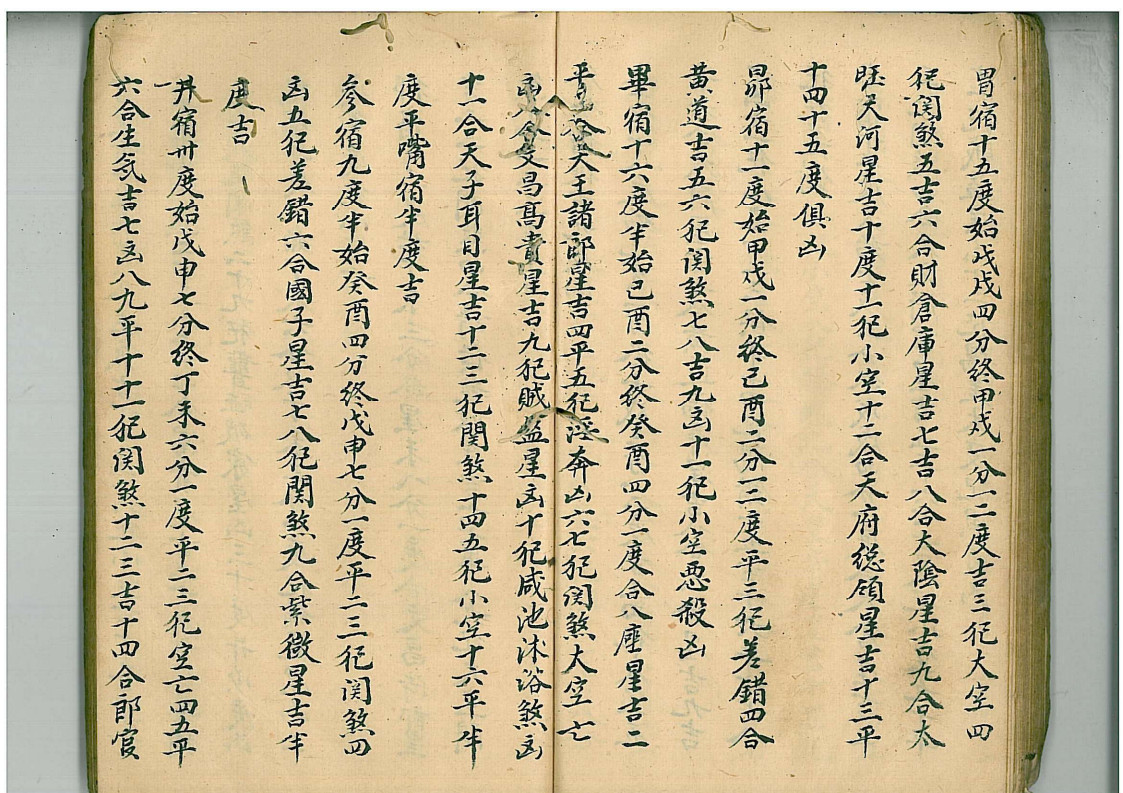 胃宿十五度始戊戌四分終甲戌一分一二度吉三犯大空四
犯関煞五吉六合財倉庫星吉七吉八合太陰星吉九合太
旺天河星吉十度十一犯小空十二合天府總領星吉十三平
十四十五度俱凶
昴宿十一度始甲戌一分終己酉二分一二度平三犯差錯四合
黄道吉五六犯関煞七八吉九凶十一犯小空悪殺凶
畢宿十六度半始己酉二分終癸酉四分一度合八座星吉二
平三合天王諸郎星吉四平五犯淫奔凶六七犯関煞大空亡
凶八合文昌髙貴星吉九犯賊盗星凶十犯咸池沐浴煞凶
十一合天子耳目星吉十二三犯関煞十四五犯小空十六平半
度平嘴宿半度吉
参宿九度半始癸酉四分終戊申七分一度平二三犯関煞四
凶五犯差錯六合國子星吉七八犯関煞九合紫微星吉半
度吉
井宿卅度始戊申七分終丁未六分一度平二三犯空亡四五平
六合生氣吉七凶八九平十十一犯関煞十二三吉十四合郎官